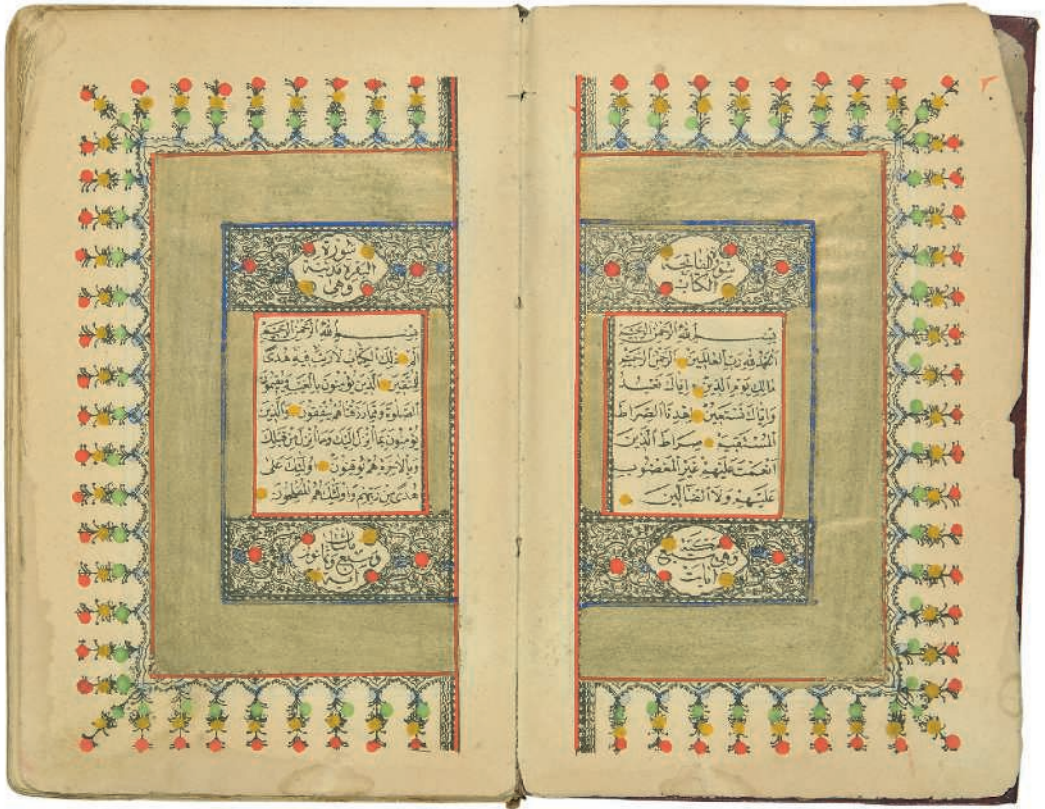 سورة الفاتحة
الكتاب
بسم الله الرحمن الرحيم
الحمد لله رب العالمين الرحمن الرحيم
مالك يوم الدين اياك نعبد
واياك نستعين اهدنا الصراط
المستقيم صراط الذين
انعمت عليهم غير المغضوب
عليهم ولا الضالين
وهي سبع
آيات
سورة
البقرة مدنية
وهي
بسم الله الرحمن الرحيم
الم ذلك الكتاب لا ريب فيه هدى
للمتقين الذين يؤمنون بالغيب ويقيمون
الصلوة ومما رزقناهم ينفقون والذين
يؤمنون بما انزل اليك وما انزل من قبلك
وبالاخرة هم يوقنون اولئك على
هدى من ربهم واولئك هم المفلحون
مائتان
وسبع وثمانون
آية